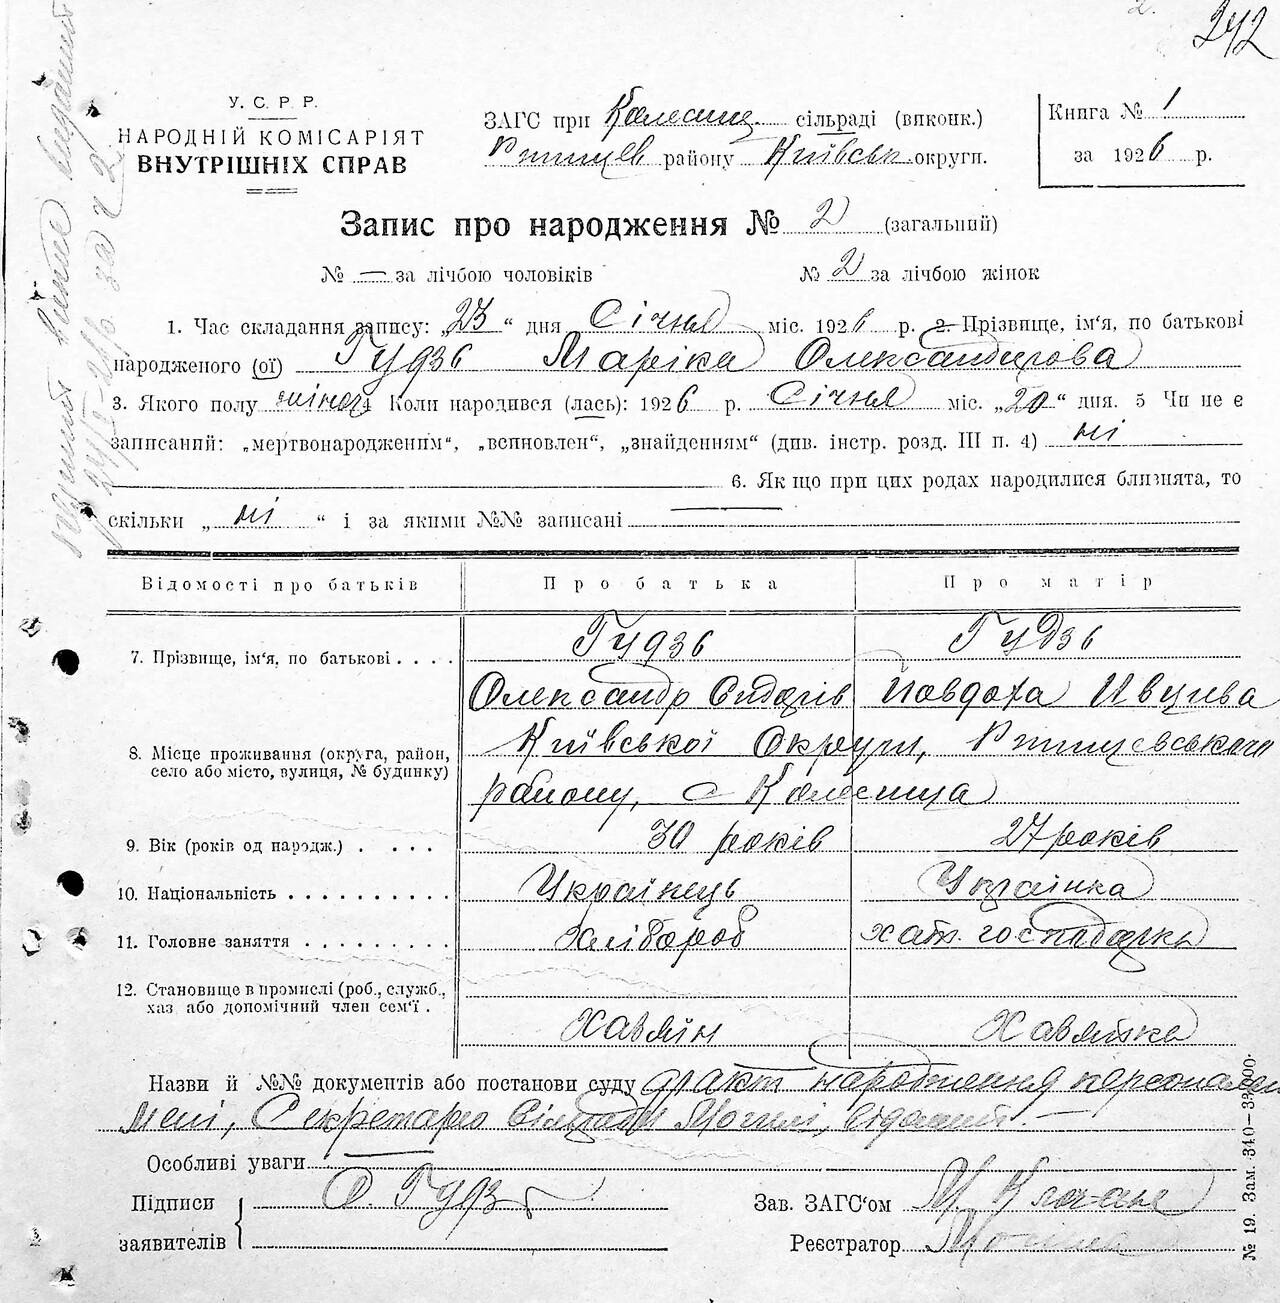 242
У. С. Р. Р.
НАРОДНІЙ КОМІСАРІЯТ
ВНУТРІШНІХ СПРАВ
ЗАГС при сільраді (виконк.)
району Київськ. округи.
Книга № 1
за 1926 р.
Запис про народження № 2 (загальний)
№ — за лічбою чоловіків № 2 за лічбою жінок
1. Час складання запису: „23“ дня Січня міс. 1926 р. 2. Прізвище, ім'я, по батькові
народженого (ої) Гудзь Маріка Олександрова
3. Якого полу жіноч 4 Коли народився (лась): 1926 р. Січня міс. „20“ дня. 5 Чи не є
записаний: „мертвонародженим“, „всиновлен“, „знайденням“ (див. інстр. розд. III п. 4) ні
6. Як що при цих родах народилися близнята, то
скільки „ ні “ і за якими №№ записані —
Відомості про батьків Про батька Про матір
7. Прізвище, ім'я, по батькові . . . . Гудзь Гудзь
Олександр Сидорів Йовдоха
8. Місце проживання (округа, район,
село або місто, вулиця, № будинку)
Київської Округи,
району, с
9. Вік (років од народж.) . . . . 30 років 27 років
10. Національність . . . . . . . . . . Українець Украінка
11. Головне заняття . . . . . . . . . Хлібороб хатн. господарка
12. Становище в промислі (роб., служб.,
хаз або допомічний член сем'ї .
Хазяїн Хазяйка
Назви й №№ документів або постанови суду факт народження персонален
мені, Секретарю Сільради
Особливі уваги —
Підписи О. Гудзь
заявителів
Зав. ЗАГС'ом
Реєстратор
№ 19. Зам. 340—